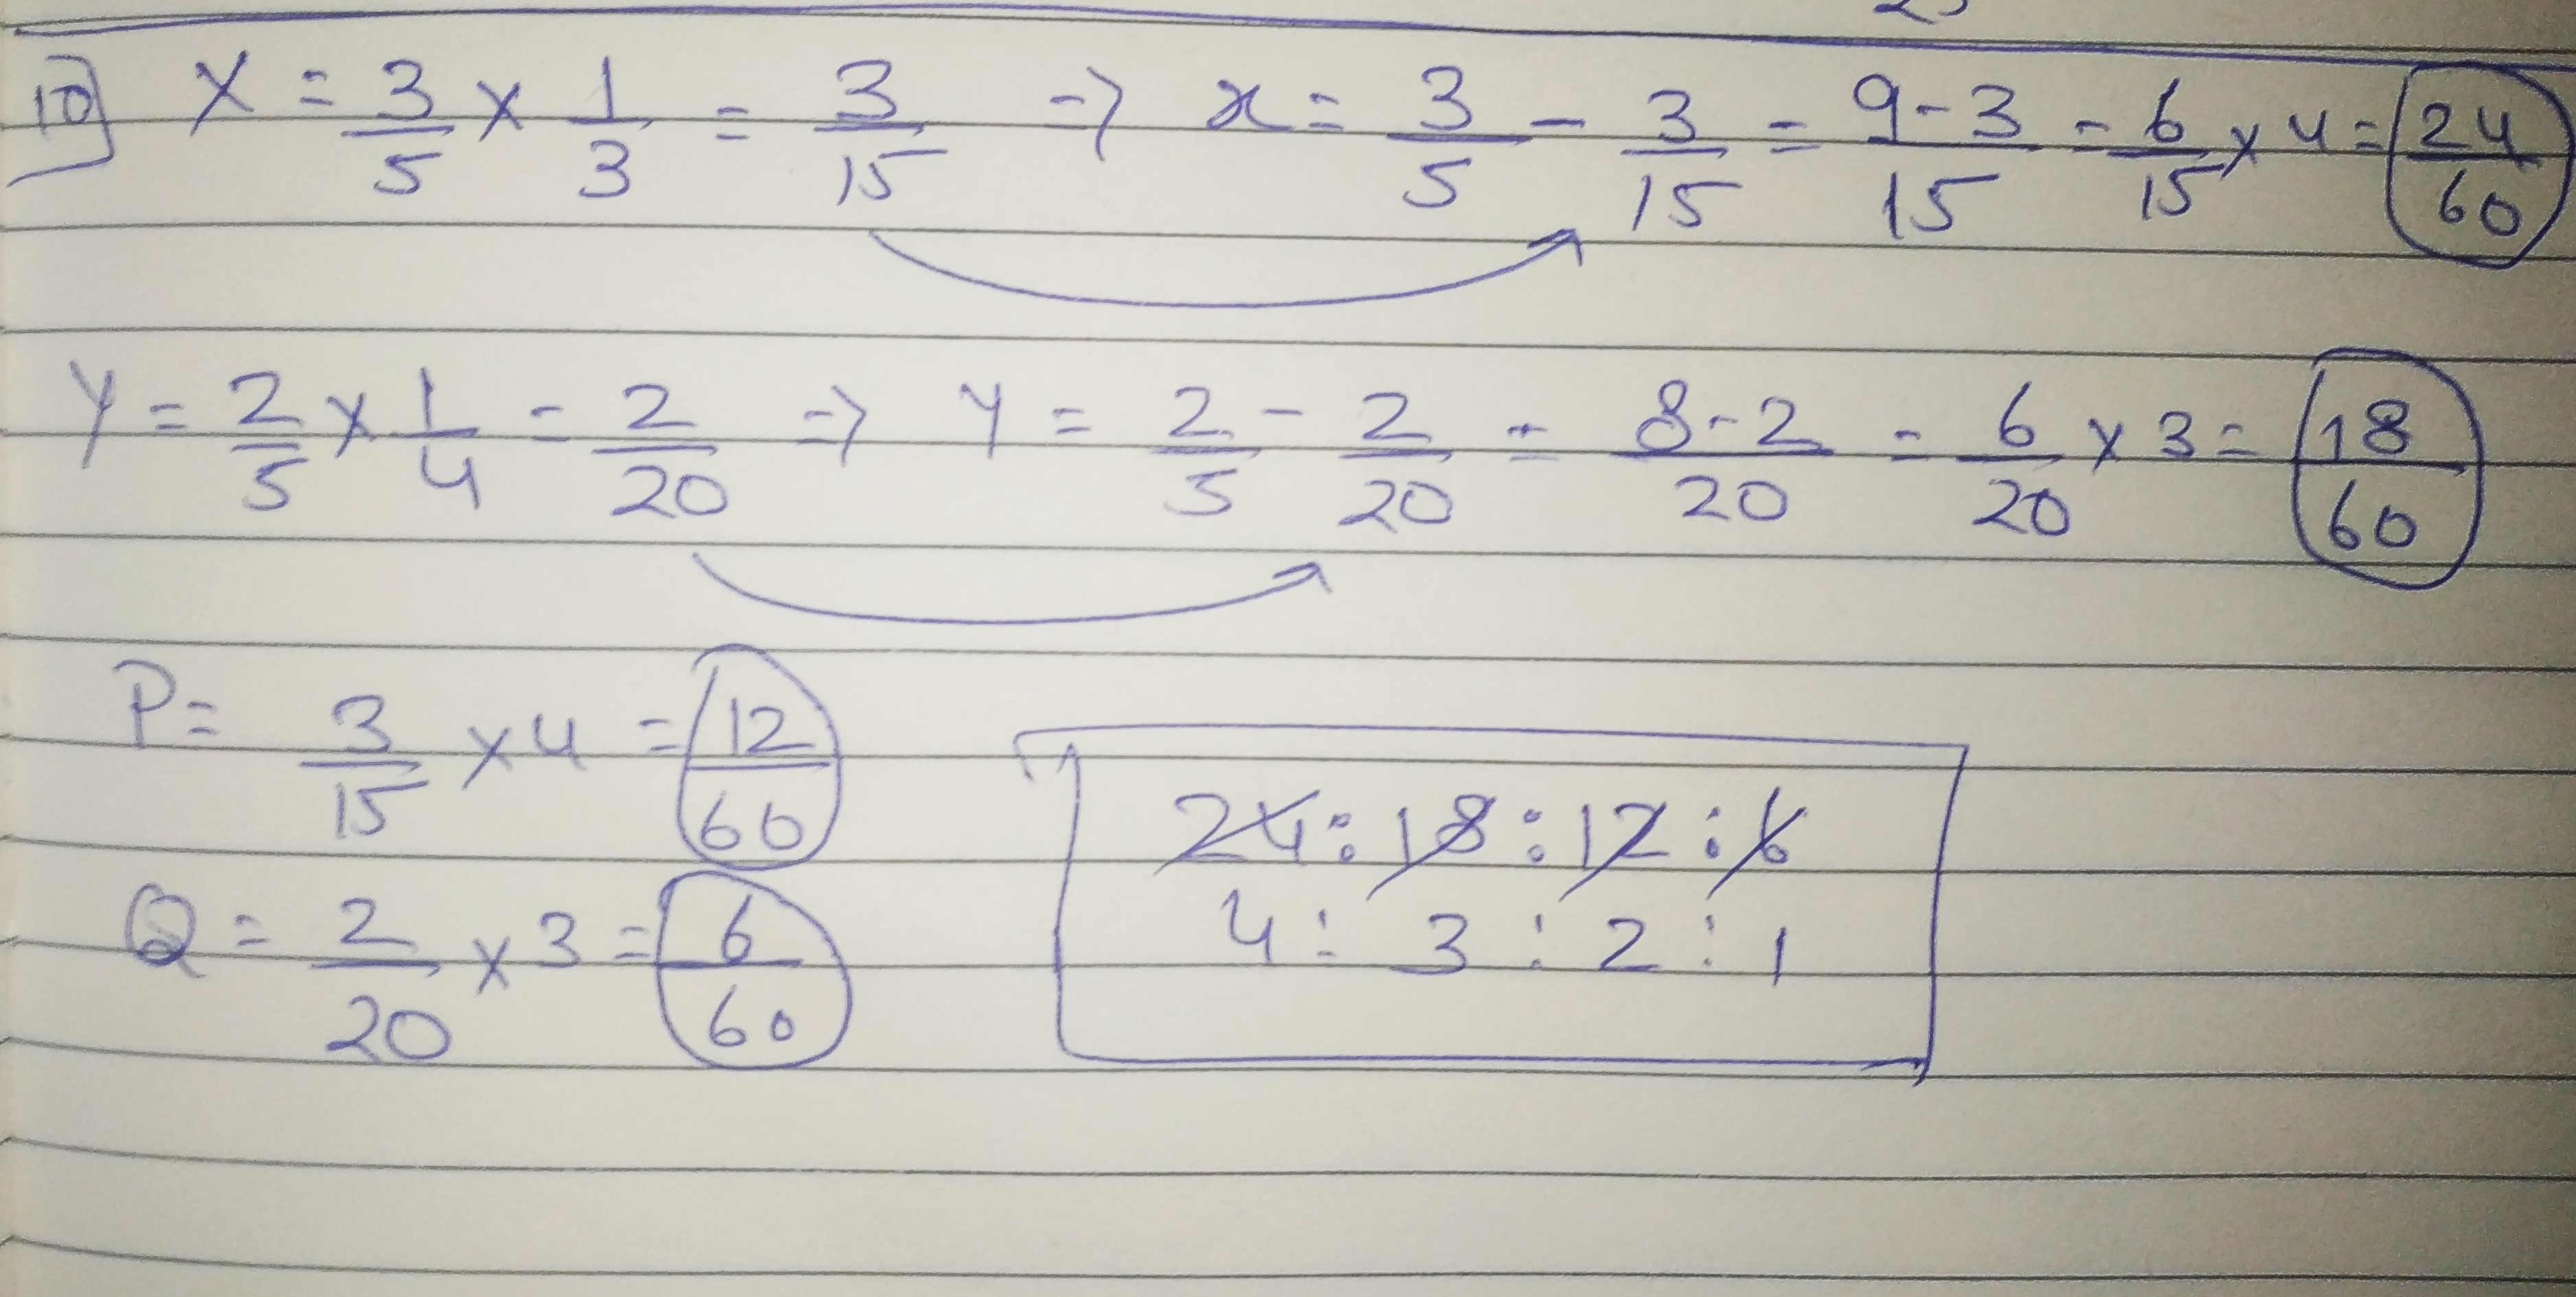 10] X = 3/5 × 1/3 = 3/15 → x = 3/5 - 3/15 = 9-3/15 = 6/15 × 4 = 24/60
Y = 2/5 × 1/4 = 2/20 → Y = 2/5 - 2/20 = 8-2/20 = 6/20 × 3 = 18/60
P = 3/15 × 4 = 12/60
24 : 18 : 12 : 6
4 : 3 : 2 : 1
Q = 2/20 × 3 = 6/60